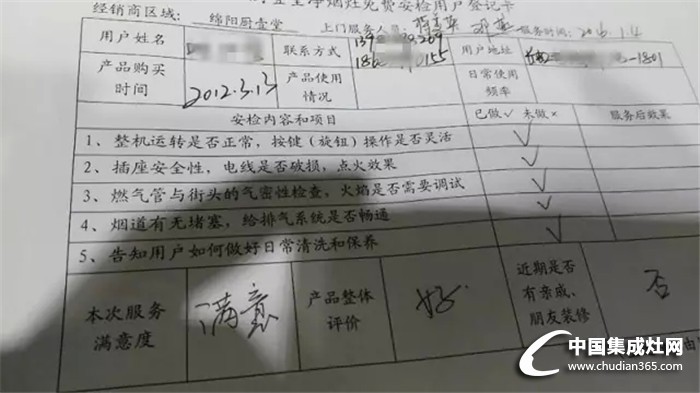 净烟灶免费安检用户登记卡
经销商区域: 绵阳厨壹堂 上门服务人员 服务时间: 2016.1.4
用户姓名 联系方式 139 269 用户地址 -1801
186 0155
产品购买时间 2012.3.13 产品使用情况 日常使用频率
安检内容和项目 已做√ 未做× 服务后效果
1、整机运转是否正常，按健（旋钮）操作是否灵活 √
2、插座安全性，电线是否破损，点火效果 √
3、燃气管与街头的气密性检查，火焰是否需要调试 √
4、烟道有无堵塞，给排气系统是否畅通 √
5、告知用户如何做好日常清洗和保养 √
本次服务满意度 满意 产品整体评价 好 近期是否有亲戚、朋友装修 否
中国集成灶网
www.chudian365.com